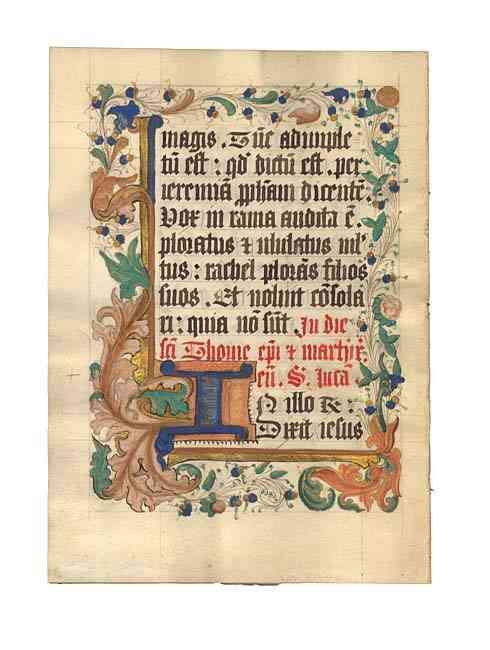 magis. Tūc adimple
tū est : qd̄ dictū est . per
ieremiā ꝓph̄am dicentē.
Vox in rama audita ē.
ploratus ⁊ ululatus ml'
tus : rachel plorās filios
suos . Et noluit cōsola
ri : quia nō sūt . In die
sci Thome ep̄i ⁊ martyr.
eū. S. lucā.
IN illo ⁊c :
Dixit iesus